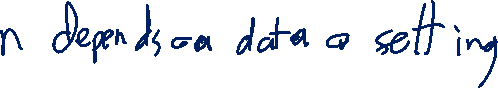 n depends on data or setting